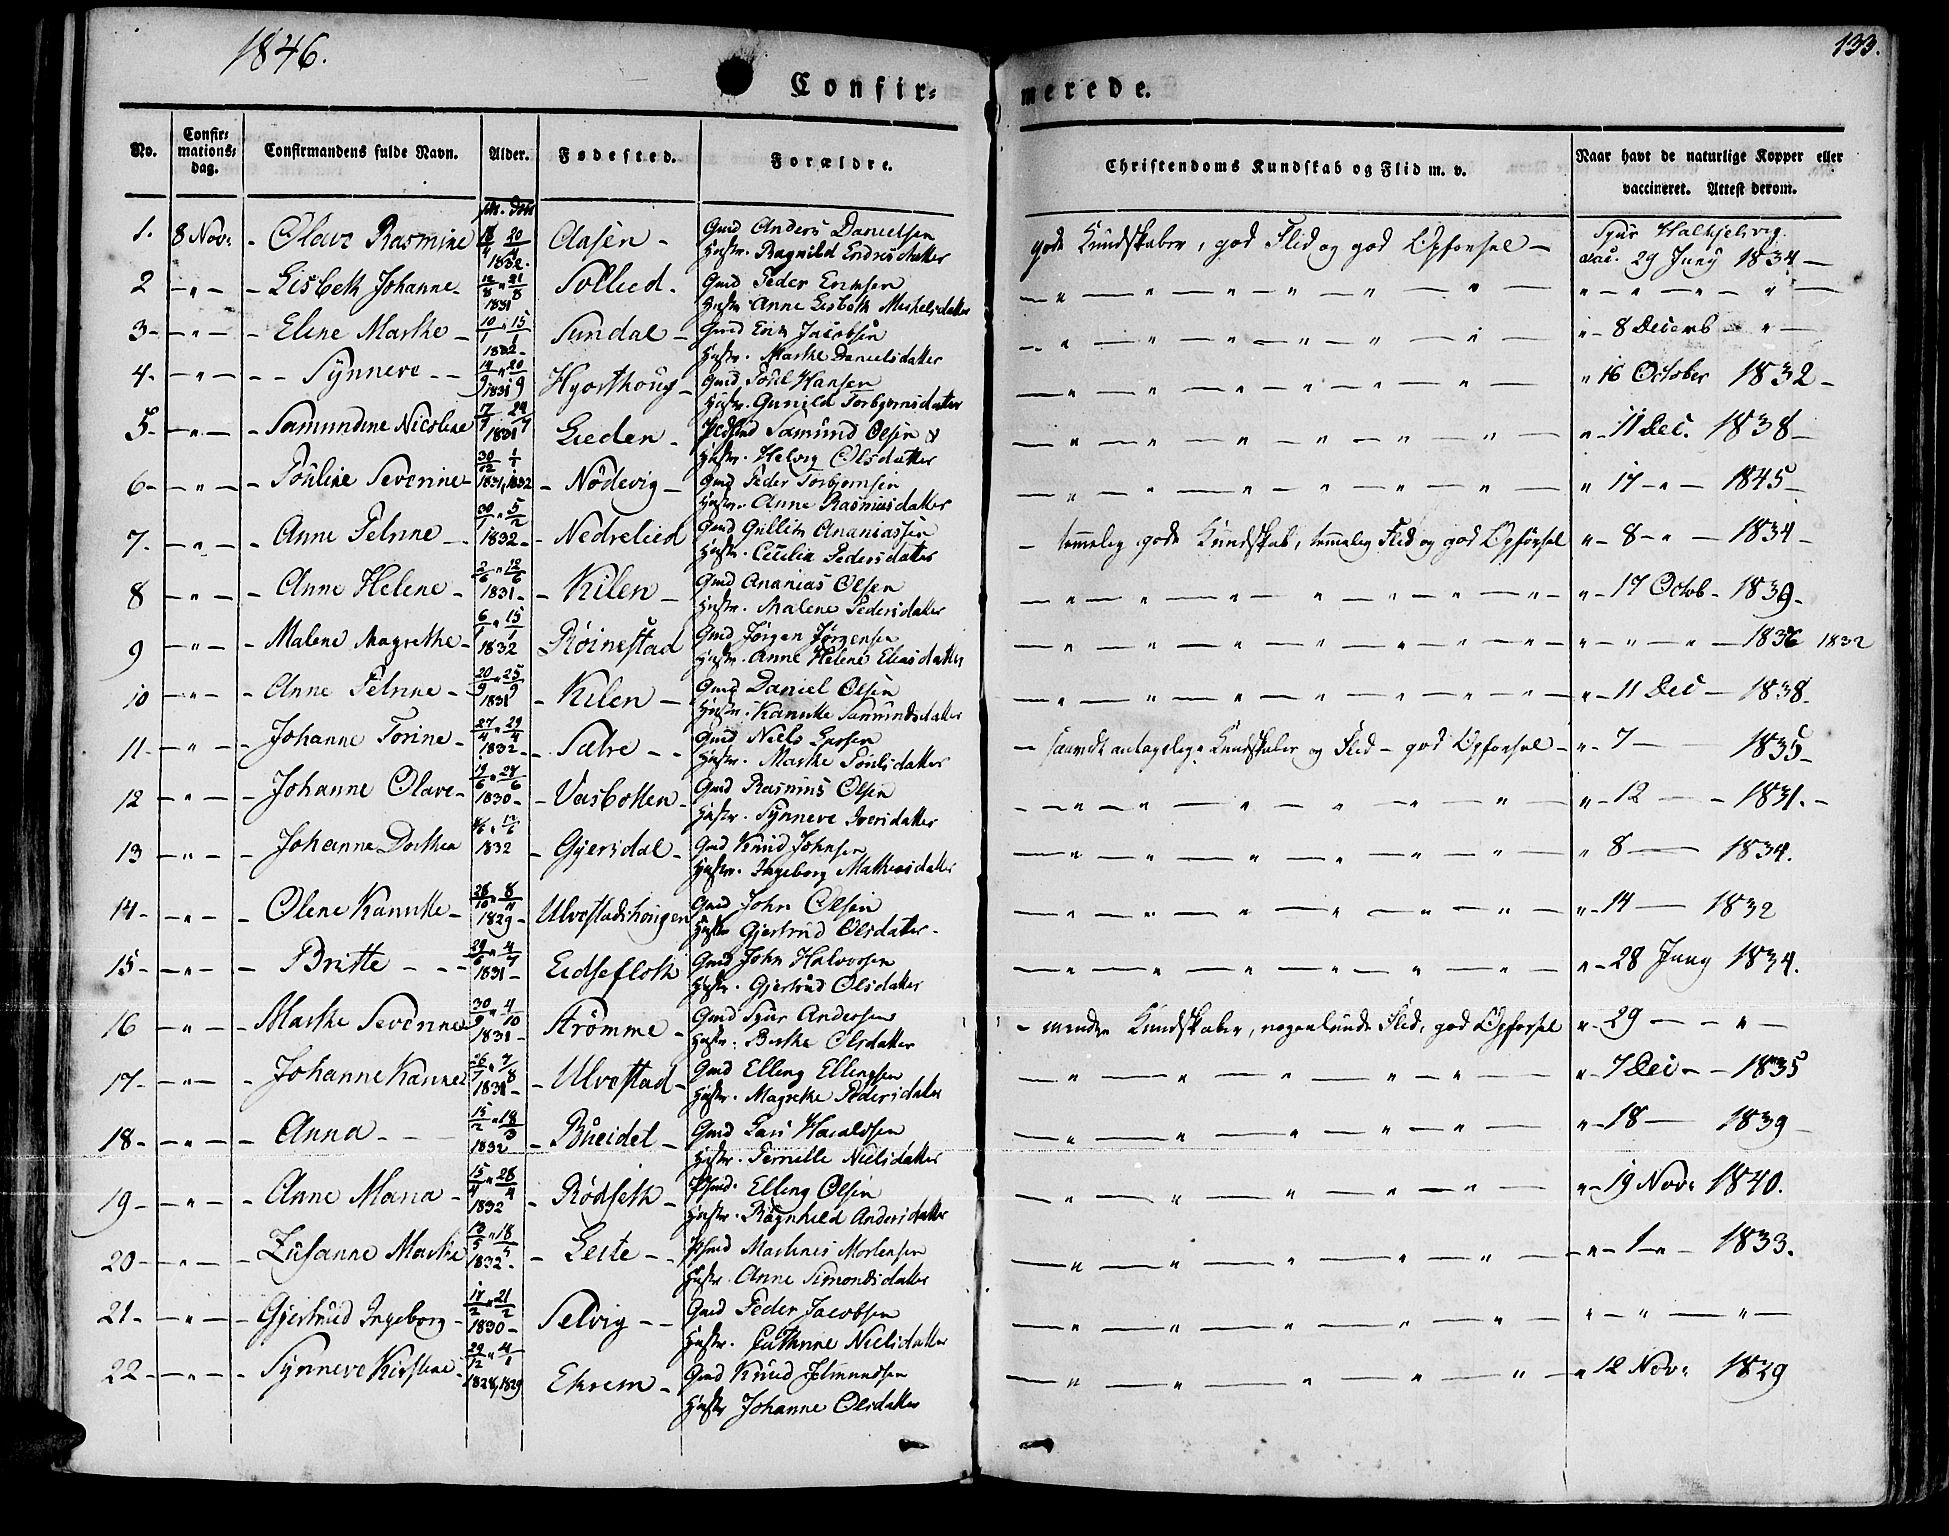 1846.
133.
Confir= merede.
No. Confir= mations= dag. Confirmandens fulde Navn. Alder. Fødested. Forældre. Christendoms Kundskab og Flid m. v. Naar havt de naturlige Kopper eller vaccineret. Attest derom.
1. 8 Nov: - Olave Rasmine 20/4 1832. Aasen - Gmd Anders Danielsen
Hustr. Ragnild Endresdatter gode Kundskaber, god Flid og god Opførsel - 29 Juny 1834 -
2 - " - - Lisbeth Johanne - 12/8 " 21/8 1831 Sollied - Gmd Peder Eriksen
Hustr. Anne Lisbeth Mickelsdatter - " - " - " - " - " - " - " - " - " -
3 - " - - Elene Marthe - 10/1 " 15/1 1832 - Sundal - Gmd Erik Jacobsen
Hustr. Marthe Danielsdatter - " - " - " - " - " - " - " 8 Decemb - " -
4. - " - - Synneve - - 14/9 " 20/9 1831 Hjorthoug - Gmd Poul Hansen
Hustr. Gunild Torbjørnsdatter - " - " - " - " - " - " - " 16 October 1832 -
5 - " - - Samundine Nicoline 7/7 24/7 1831 Lieden - Samund Olsen
Hustr. Helvig Olsdatter - " - " - " - " - " - " - " - 11 Dec. 1838 -
6 - " - - Pouline Severine - 30/12 1/1 1831, 1832 - Nödevig - Gmd Peder Torbjørnsen
Hustr. Anne Rasmusdatter - " - " - " - " - " - " - " 17 - " - 1845 -
7. - " - - Anne Petrine - 30/1 " 5/2 1832 - - Nedrelied Gmd Gullik Ananiassen
Hustr. Cecilia Pedersdatter - temmelig gode Kundskab, temmelig Flid og god Opførsel " - 8 - " - 1834 -
8 - " - - Anne Helene - 2/6 " 12/6 1831 - - Kilen - Gmd Ananias Olsen
Hustr. Malene Pedersdatter - " - " - " - " - " - " - " - 17 Octob - 1839 -
9 - " - - Malene Magrethe - 6/1 " 15/1 1832 Röinestad Gmd Jørgen Jørgensen
Hustr. Anne Helene Eliasdatter - " - " - " - " - " - " - " - " - " - 1836 1832
10 - " - - Anne Petrine - 20/9 " 25/9 1831 - Kilen - Gmd Daniel Olsen
Hustr. Kanutte Samundsdatter - " - " - " - " - " - " - " - 11 Dec - 1838 -
11 - " - - Johanne Torine - 27/4 " 29/4 1832 - - Sætre - - Gmd Niels Larsen
Hustr. Marthe Poulsdatter - antagelige Kundskaber og Flid - god Opførsel - " - 7 - 1835 -
12 - " - - Johanne Olave - 19/6 " 27/6 1830 - - Vasbotten - Gmd Rasmus Olsen
Hustr. Synneve Iversdatter - " - " - " - " - " - " - " - 12 - - 1831. -
13 - " - - Johanne Dorthea 1832 - Gjersdal - Gmd Knud Johnsen
Hustr. Ingeborg Mathiasdatter - " - " - " - " - " - " - " 8 - 1834.
14 - " - - Olene Kanutte - 28/10 " 8/11 1829 - Ulvestadshougen Gmd John Olsen
Hustr Gjertrud Olsdatter - - " - " - " - " - " - " - " - 14 - 1832
15 - " - - Britte - - - 29/6 " 4/7 1831 - Eidsefloth Gmd John Halvorsen
Hustr. Gjertrud Olsdatter - " - " - " - " - " - " - " - 28 Juny 1834.
16 - " - - Marthe Severine 30/9 " 4/10 1831 - Strömme - Gmd Sjur Andersen
Hustr. Berthe Olsdatter - mindre Kundskaber, nogenlunde Flid, god Opførsel " - 29 - - " -
17 - " - - Johanne Kanne 26/7 " 7/8 1831 - - Ulvestad - Gmd Elling Ellingsen
Hustr. Magrethe Pedersdatter - " - " - " - " - " - " - " - 7 Dec - - 1835
18 - " - - Anna - - - 15/2 " 18/3 1832 - Bueidet - Gmd Lars Haraldsen
Hustr. Pernille Nielsdatter - " - " - " - " - " - " - " - 18 - 1839 -
19 - " - - Anne Maria - 15/4 " 28/4 1832 - Rödseth - Elling Olsen
Hustr. Ragnhild Andersdatter - " - " - " - " - " - " - " - 19 Nov: 1840.
20 - " - - Zusanne Marthe 13/5 " 18/5 1832 - - Leite - Mathias Mortensen
Hustr. Anne Simondsdatter - " - " - " - " - " - " - " - 1 - " - 1833.
21 - " - - Gjertrud Ingeborg - 17/2 " 21/2 1830 - Selvig - - Gmd Peder Jacobsen
Hustr. Cathrine Nielsdatter - " - " - " - " - " - " - " - " - " -
22 - " - - Synneve Kirstine - 29/12 " 4/1 1828, 1829 Ekrem - Gmd Knud
Hustr Johanne Olsdatter - " - " - " - " - " - " 12 Nov: 1829